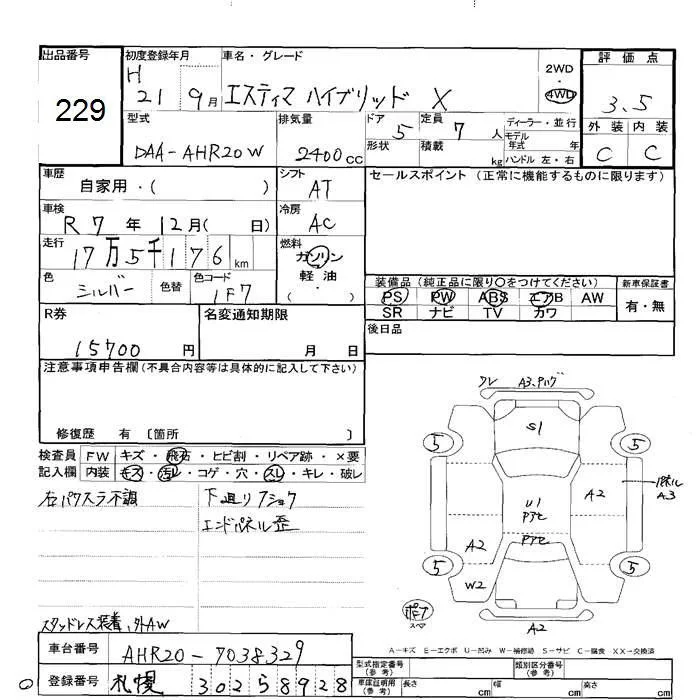 出品番号 初度登録年月 車名・グレード 評価点
229
H 21 9月 エスティマ ハイブリッド X 2WD 4WD 3.5
型式 排気量 ドア 5 定員 7人 ディーラー・並行 外装 内装
DAA-AHR20W 2400cc 形状 積載 kg モデル年式 年 ハンドル 左・右 C C
車歴 自家用・( ) シフト AT セールスポイント (正常に機能するものに限ります)
車検 R7年 12月( 日) 冷房 AC
走行 17万5千176km 燃料 ガソリン
色 シルバー 色替 色コード 1F7 軽油 ・( )
装備品 (純正品に限り○をつけてください) 新車保証書
PS PW ABS エアB AW 有・無
SR ナビ TV カワ
R券 15700円 名変通知期限 月 日 後日品
注意事項申告欄(不具合内容等は具体的に記入して下さい)
修復歴 有 〔箇所 〕
検査員 FW キズ・飛石・ヒビ割・リペア跡・×要
記入欄 内装 キズ・汚レ・コゲ・穴・スレ・キレ・破レ
右パワスラ不調 下廻りフショク
エンドパネル歪
スタッドレス装着、外AW
ワレ A3、アハゲ
S1
5 5
パネル
A3
A2
U1
Pアセ
Pアセ
A2
5 5
W2
スペア
A2
A-キズ E-エクボ U-凹み W-補修跡 S-サビ C-腐食 XX-交換済
車台番号 AHR20-7038329
登録番号 札幌 302 5 8928
型式指定番号(参考) 類別区分番号(参考)
車庫証明用(参考) 長さ cm 幅 cm 高さ cm